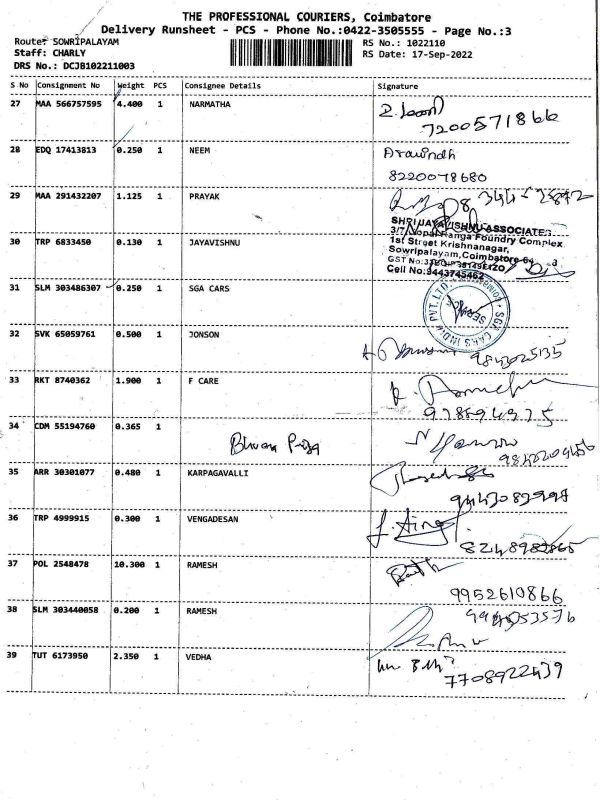 THE PROFESSIONAL COURIERS, Coimbatore
Delivery Runsheet - PCS - Phone No.:0422-3505555 - Page No.:3
Route: SOWRIPALAYAM RS No.: 1022110
Staff: CHARLY RS Date: 17-Sep-2022
DRS No.: DCJB102211003
S No Consignment No Weight PCS Consignee Details Signature
27 MAA 566757595 4.400 1 NARMATHA
7200571866
28 EDQ 17413813 0.250 1 NEEM Aravindh
8220078680
29 MAA 291432207 1.125 1 PRAYAK
SHRI JAYAVISHNU ASSOCIATES
30 TRP 6833450 0.130 1 JAYAVISHNU
1st Street Krishnanagar,
Sowripalayam, Coimbatore
Cell No:9443745462
31 SLM 303486307 0.250 1 SGA CARS
SGA CARS INDIA PVT. LTD.
SERVICE
32 SVK 65059761 0.500 1 JONSON
9843025135
33 RKT 8740362 1.900 1 F CARE
34 CDM 55194760 0.365 1
35 ARR 30301077 0.480 1 KARPAGAVALLI
36 TRP 4999915 0.300 1 VENGADESAN
37 POL 2548478 10.300 1 RAMESH
9952610866
38 SLM 303440058 0.200 1 RAMESH
39 TUT 6173950 2.350 1 VEDHA
7708922439